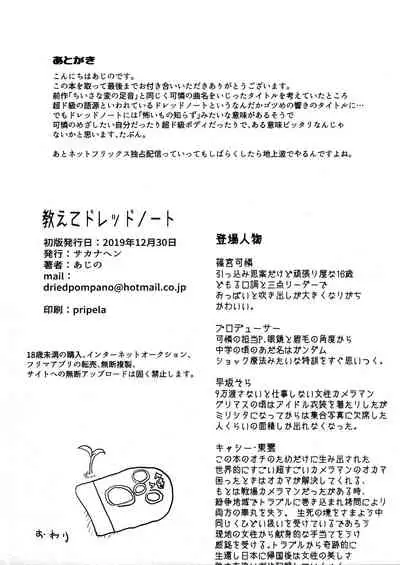 あとがき
こんにちはあじのです。
この本を取って最後までお付き合いいただきありがとうございます。
前作「ちいさな変の足音」と同じく可憐の曲名をいじったタイトルを考えていたところ
超ド級の語源といわれているドレッドノートというなんだかゴツめの響きのタイトルに…
でもドレッドノートには「怖いもの知らず」みたいな意味があるそうで
可憐のめざしたい自分だったり超ド級ボディだったりで、ある意味ピッタリなんじゃ
ないかと思います、たぶん。
あとネットフリックス独占配信っていってもしばらくしたら地上波でやるんですよね。
教えてドレッドノート
初版発行日：2019年12月30日
発行：サカナヘン
著者：あじの
mail：
driedpompano@hotmail.co.jp
印刷：pripela
18歳未満の購入、インターネットオークション、
フリマアプリの転売、無断複製、
サイトへの無断アップロードは固く禁止します。
おわり
登場人物
篠宮可憐
引っ込み思案だけど頑張り屋な16歳
どもる口調と三点リーダーで
おっぱいと吹き出しが大きくなりがち
かわいい。
プロデューサー
可憐の担当P。眼鏡と眉毛の角度から
中学の頃のあだ名はガンダム
ショック療法みたいな特訓をすぐ思いつく。
早坂そら
9万渡さないと仕事しない女性カメラマン
グリマスの頃はアイドル衣装を着たりしたが
ミリシタになってからは集合写真に欠席した
人くらいの面積しか出れなくなった。
キャシー・東雲
この本のオチのためだけに生み出された
世界的にすごい超すごいカメラマンのオカマ
困ったときはオカマが解決してくれる。
もとは戦場カメラマンだったがある時、
紛争地域でトラブルに巻き込まれ拷問により
両方の睾丸を失う。生死の境をさまよう中
同じくひどい扱いを受けているであろう
現地の女性から献身的な手当てをうけ
感銘を受ける。トラブルから奇跡的に
生還し日本に帰国後は女性の美しさ